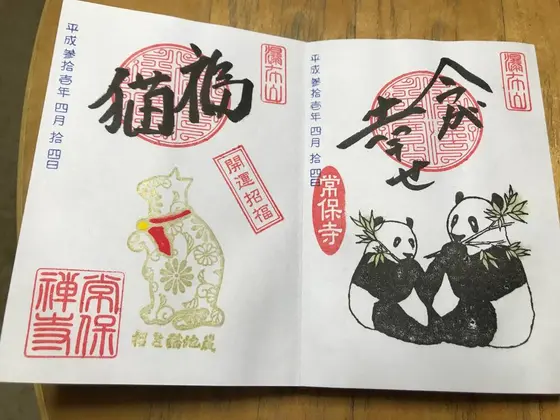 瀑布山
今が
幸せ
平成参拾壱年 四月 拾四日
常保寺
瀑布山
福
猫
平成参拾壱年 四月 拾四日
開運招福
常保
禅寺